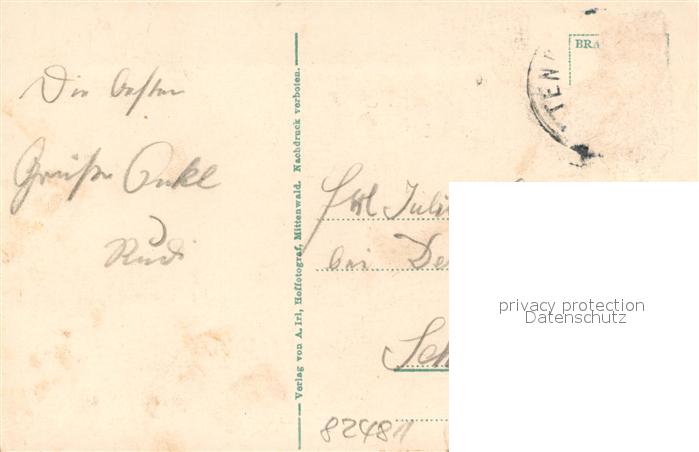 Die besten
Grüße Onkel
Rudi
Verlag von A. Irl, Hoffotograf, Mittenwald. Nachdruck verboten.
BRA
TENA
Frl Juli
bei De
Sch
82481
privacy protection
Datenschutz